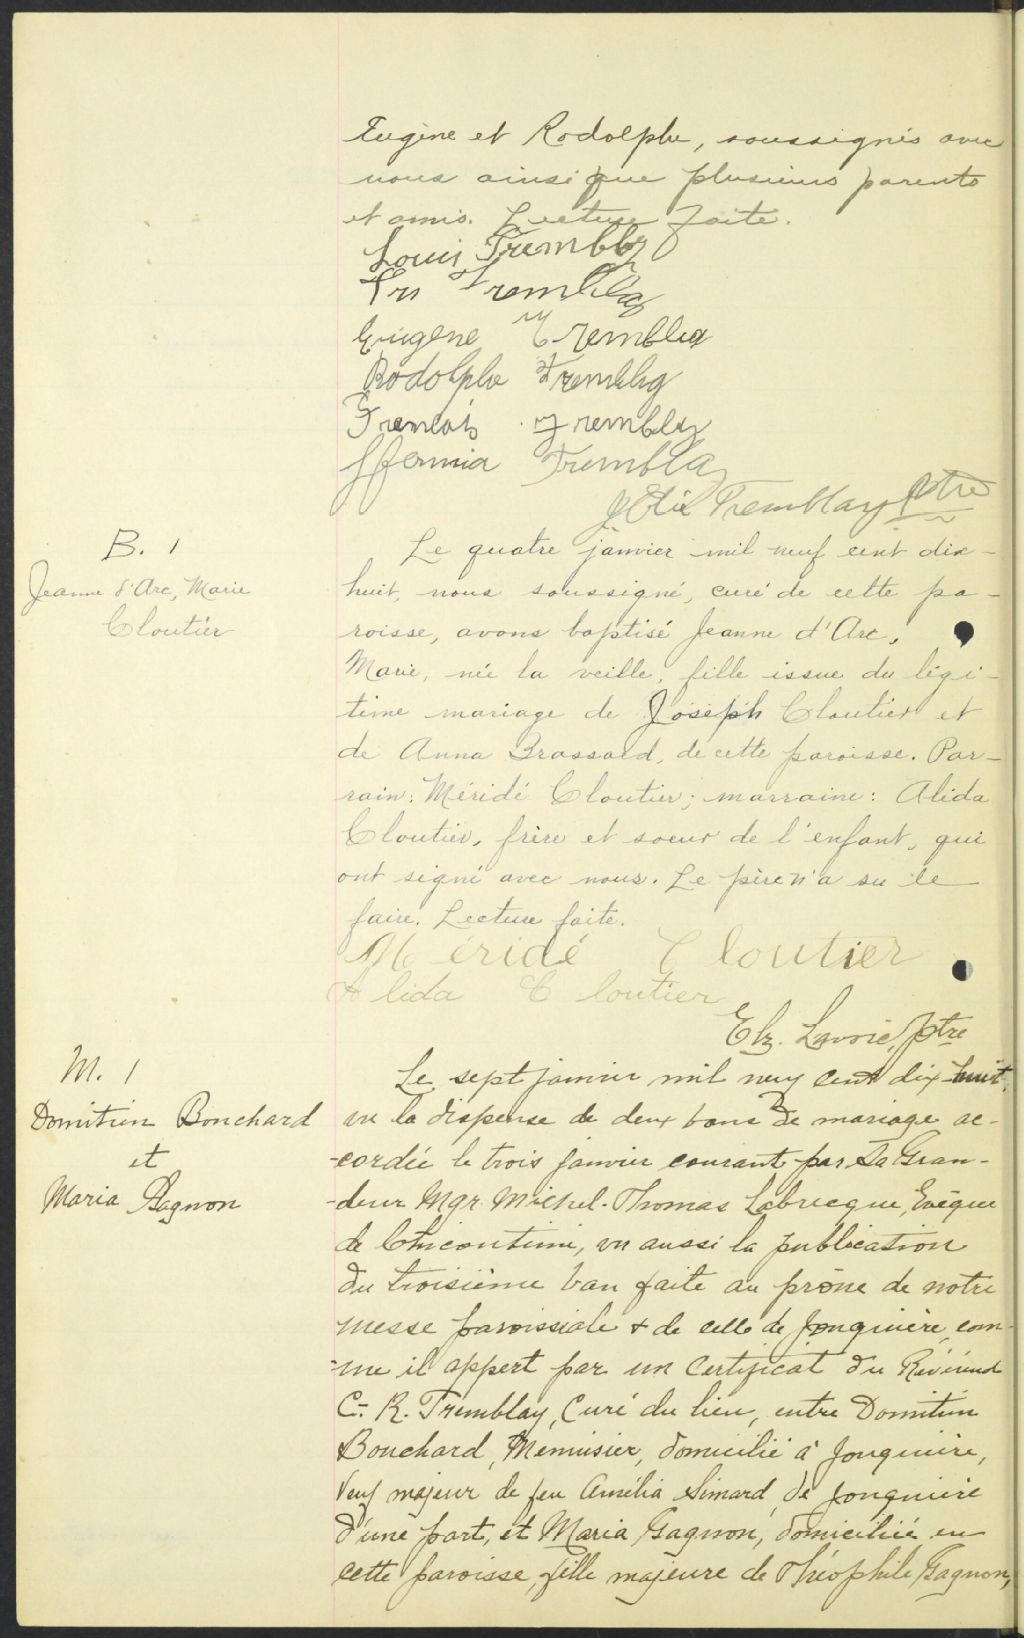 Eugène et Rodolphe, soussignés avec
nous ainsi que plusieurs parents
et amis. Lecture faite.
Louis Trembly
Trembla
Eugene Trembla
Rodolphe Trembly
Trembly
Trembla
Tremblay ptre
B. 1
Jeanne d'Arc, Marie
Cloutier
Le quatre janvier mil neuf cent dix-
huit, nous soussigné, curé de cette pa-
roisse, avons baptisé Jeanne d'Arc,
Marie, née la veille, fille issue du légi-
time mariage de Joseph Cloutier et
de Anna Brassard, de cette paroisse. Par-
rain: Méridé Cloutier; marraine: Alida
Cloutier, frère et soeur de l'enfant, qui
ont signé avec nous. Le père n'a su le
faire. Lecture faite.
Méridé Cloutier
Alida Cloutier
Elz. Lavoie, ptre
M. 1
Domitien Bouchard
et
Maria Gagnon
Le sept janvier mil neuf cent dix-huit,
vu la dispense de deux bans de mariage ac-
-cordée le trois janvier courant par Sa Gran-
-deur Mgr Michel-Thomas Labrecque, Evêque
de Chicoutimi, vu aussi la publication
du troisième ban faite au prône de notre
messe paroissiale & de celle de Jonquière, com-
-me il appert par un certificat du Révérend
C.-R. Tremblay, Curé du lieu, entre Domitien
Bouchard, Menuisier, domicilié à Jonquière,
Veuf majeur de feu Amélia Simard, de Jonquière
d'une part, et Maria Gagnon, domiciliée en
cette paroisse, fille majeure de Théophile Gagnon,